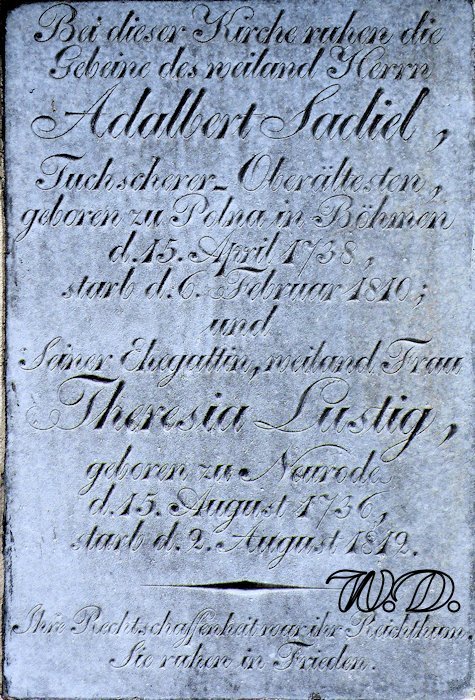 Bei dieser Kirche ruhen die
Gebeine des weiland Herrn
Adalbert Sadiel,
Tuchscherer-Oberältesten,
geboren zu Polna in Böhmen
d. 15. April 1738,
starb d. 6. Februar 1810;
und
Seiner Ehegattin, weiland Frau
Theresia Lustig,
geboren zu Neurode
d. 15. August 1736,
starb d. 2. August 1812.
W. D.
Ihre Rechtschaffenheit war ihr Reichthum
Sie ruhen in Frieden.